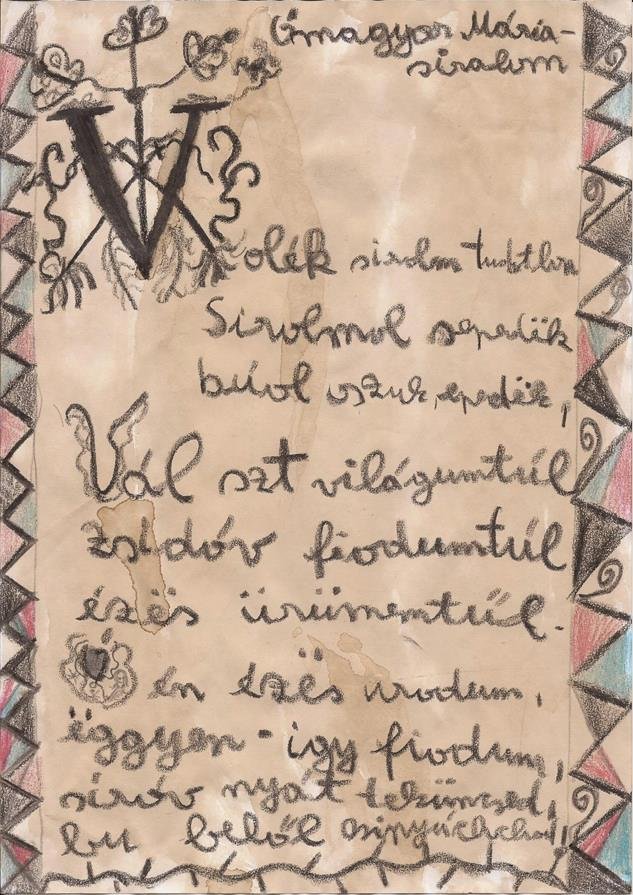 Ómagyar Mária-
siralom
Volék siralm tudotlon
Sirolmol sepedük
búol oszuk, epedék,
Vál szt világumtúl
zsidóv fiodumtúl
ézës ürümemtűl.
Ó én ézës urodum,
ëggyen-igy fiodum,
síróv nyát teküncsed,
bu belől